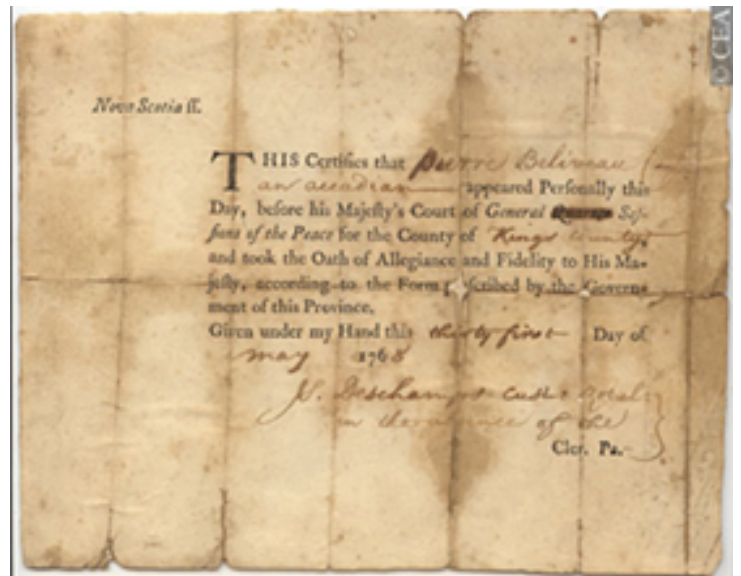 © CEA
Nova Scotia ſſ.
THIS Certifies that pierre Beliveau
an accadian appeared Perſonally this
Day, before his Majeſty's Court of General Seſ-
ſions of the Peace for the County of Kings County,
and took the Oath of Allegiance and Fidelity to His Ma-
jeſty, according to the Form preſcribed by the Govern-
ment of this Province.
Given under my Hand this thirty first Day of
may 1768
J. Deschamps Cust: Rotul:
in the absence of the
Cler. Pa.